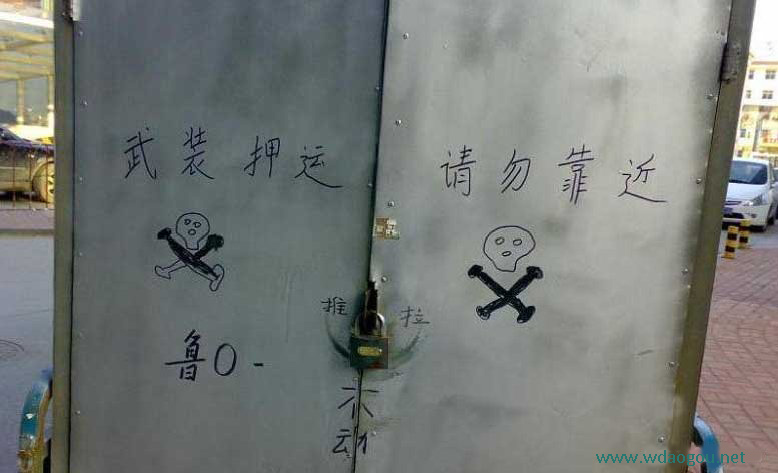 武装押运 请勿靠近
推 拉
鲁O-
不
动
www.wdaogou.net